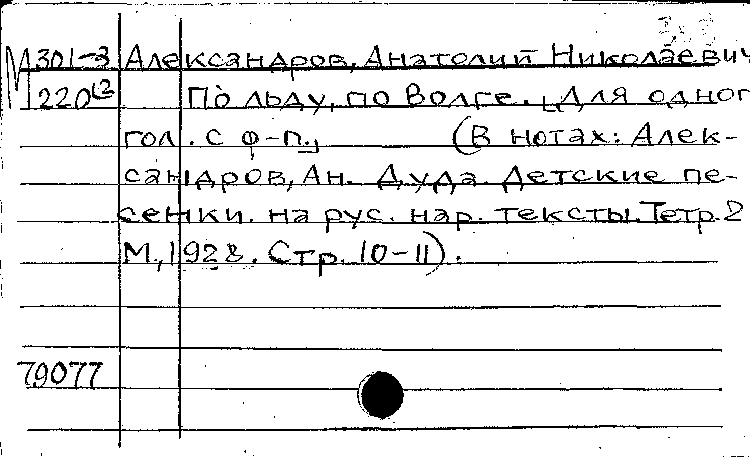 М 301-3 Александров, Анатолий Николаевич
220 По льду, по Волге. [Для одног
гол. с ф-п.] (В нотах: Алек-
сандров, Ан. Дуда. Детские пе-
сенки. на рус. нар. тексты. Тетр. 2
М., 1928. Стр. 10-11).
79077